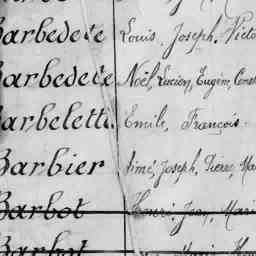 Barbedete Louis, Joseph, Victo
Barbedete Noël, Lucien, Eugène, Const
Barbeletti Emile, François
Barbier Aimé, Joseph, Pierre, Ma
Barbot Henri, Jean, Mari
Barbot